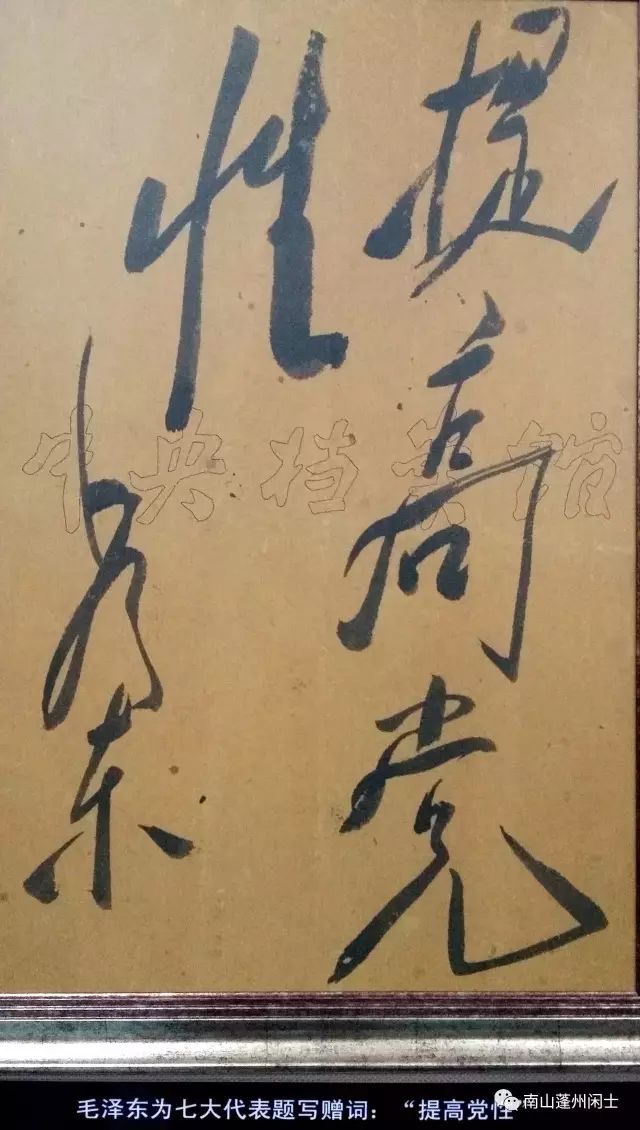 提高党
性
毛泽东
中央档案馆
毛泽东为七大代表题写赠词：“提高党性
南山蓬州闲士